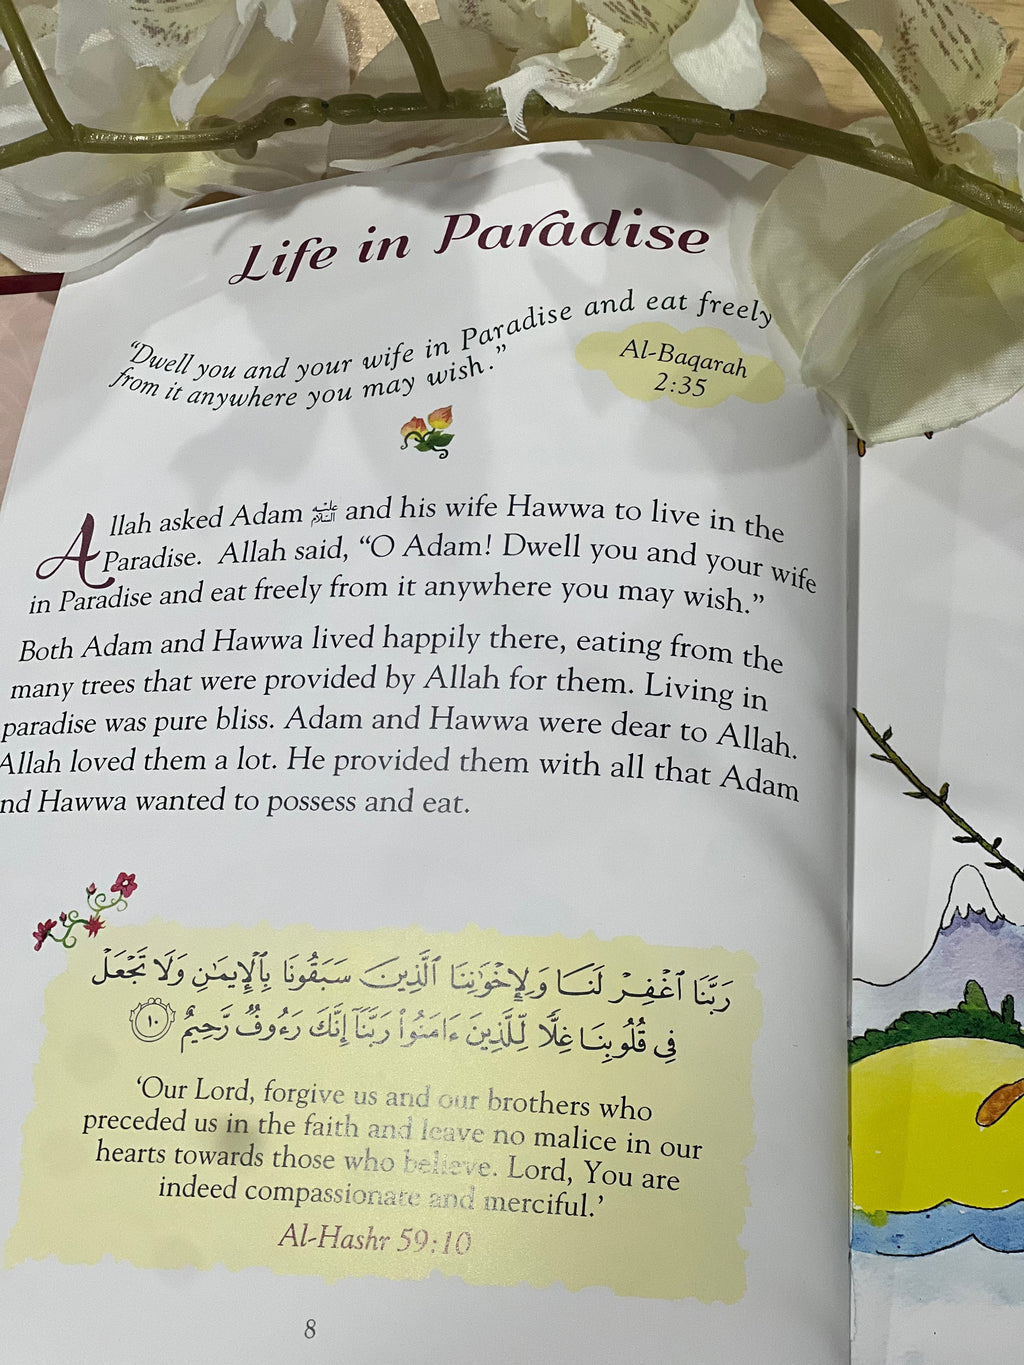 Life in Paradise
“Dwell you and your wife in Paradise and eat freely
from it anywhere you may wish.”
Al-Baqarah
2:35
Allah asked Adam عليه السلام and his wife Hawwa to live in the
Paradise. Allah said, “O Adam! Dwell you and your wife
in Paradise and eat freely from it anywhere you may wish.”
Both Adam and Hawwa lived happily there, eating from the
many trees that were provided by Allah for them. Living in
paradise was pure bliss. Adam and Hawwa were dear to Allah.
Allah loved them a lot. He provided them with all that Adam
nd Hawwa wanted to possess and eat.
رَبَّنَا ٱغْفِرْ لَنَا وَلِإِخْوَٰنِنَا ٱلَّذِينَ سَبَقُونَا بِٱلْإِيمَـٰنِ وَلَا تَجْعَلْ
فِى قُلُوبِنَا غِلًّا لِّلَّذِينَ ءَامَنُوا۟ رَبَّنَآ إِنَّكَ رَءُوفٌ رَّحِيمٌ ١٠
‘Our Lord, forgive us and our brothers who
preceded us in the faith and leave no malice in our
hearts towards those who believe. Lord, You are
indeed compassionate and merciful.’
Al-Hashr 59:10
8